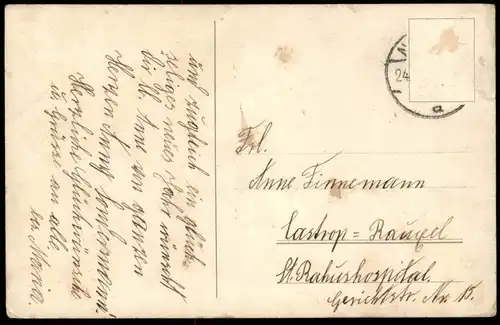 und zugleich ein glück-
seliges neues Jahr wünscht
dir lb. Anne von ganzen
Herzen Anny
Herzliche Glückwünsche
u. Grüsse an alle
Maria.
24.
a
Frl.
Anne Finnemann
Castrop=Rauxel
St. Rahushospital.
Gerichtstr. No 15.